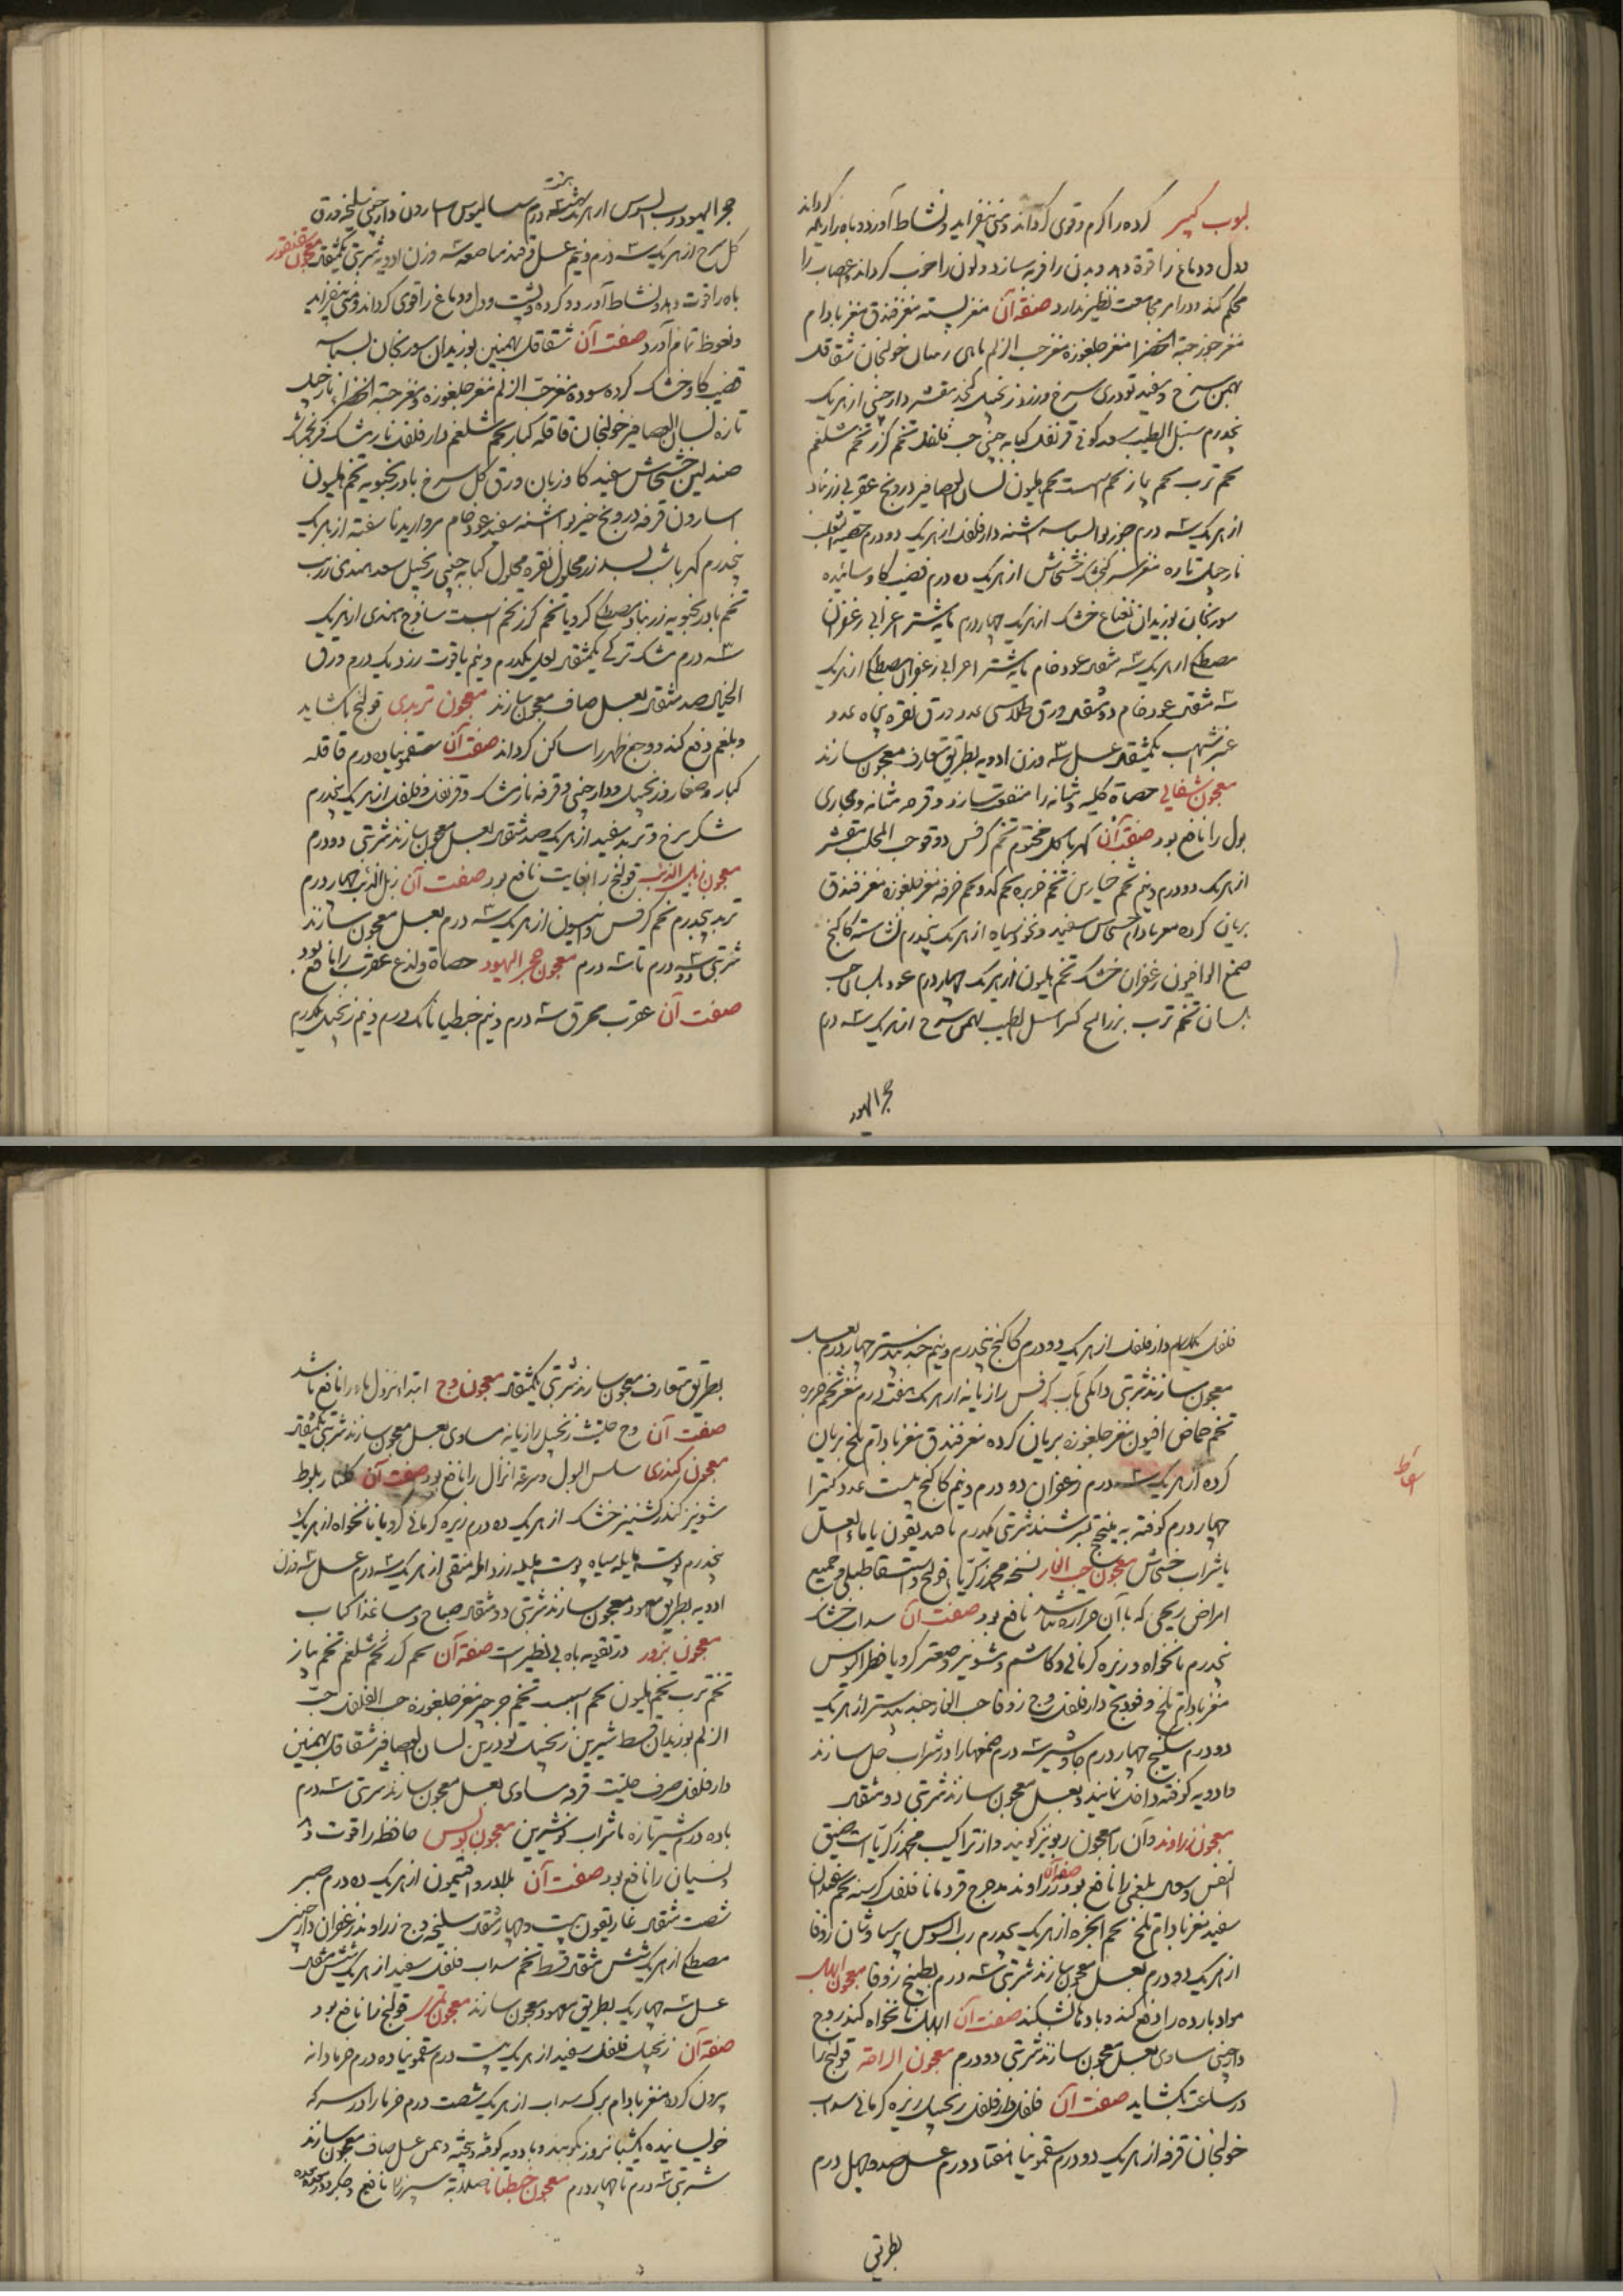 لبوب کبیر کرده را گرم و قوی گرداند و منی بیفزاید و نشاط آورد و باه را
گرداند
و دل و دماغ را قوة دهد و بدن را فربه سازد و لون را خوب گرداند و اعصاب را
محکم کند و در امر مجامعت نظیر ندارد صفة آن مغز پسته مغز فندق مغز بادام
مغز جوز حبة الخضرا مغز جلغوزه مغز حب الزلم ماهی خولنجان شقاقل
بهمن سرخ و سفید تودری سرخ و زرد زنجبیل کنجد مقشر دارچینی از هریک
پنجدرم سنبل الطیب سعد کوفی قرنفل کبابه چینی حب فلفل تخم گزر تخم شلغم
تخم ترب تخم پیاز تخم اسپست تخم هلیون لسان العصافیر درونج عقربی زرنباد
از هریک سه درم جوزبوا بسباسه اشنه دارفلفل از هریک دو درم خصیة الثعلب
نارجیل تازه مغز سر کنجشک خشخاش از هریک ده درم قضیب گاو سائیده
سورنجان بوزیدان نعناع خشک از هریک چهار درم مایه شتر اعرابی زعفران
مصطکی از هریک سه مثقال عود خام مایه شتر اعرابی زعفران مصطکی از هریک
سه مثقال عود خام دو مثقال ورق طلا سی عدد ورق نقره پنجاه عدد
عنبر اشهب یکمثقال عسل سه وزن ادویه بطریق متعارف معجون سازند
معجون حصاة کلیه و مثانه را متفتت سازد و قرحه مثانه و مجاری
بول را نافع بود صفة آن کهربا گل مختوم تخم کرفس دوقو حب المحلب مقشر
از هریک دو درم و نیم تخم خیارین تخم خربزه تخم کدو تخم خرفه مغز جلغوزه مغز فندق
بریان کرده مغز بادام خشخاش سفید و نخود سیاه از هریک پنجدرم نشاسته کاکنج
صمغ الوا افیون زعفران خشک تخم هلیون از هریک چهار درم عود بلسان حب
بلسان تخم ترب بزرالبنج سنبل الطیب بهمن سرخ از هریک سه درم
حجر الیهود
حجر الیهود رب السوس از هریک هشت درم سسالیوس اسارون دارچینی سلیخه ورق
گل سرخ از هریک سه درم و نیم عسل و قند مناصفه سه وزن ادویه شربتی یکمثقال معجون سقنقور
باه را قوت دهد و نشاط آورد و گرده و پشت و دل و دماغ را قوی گرداند و منی بیفزاید
و نعوظ تمام آورد صفت آن شقاقل بهمنین بوزیدان سورنجان بسباسه
قضیب گاو خشک کرده سوده مغز حب الزلم مغز جلغوزه و مغز حبة الخضرا نارجیل
تازه لسان العصافیر خولنجان قاقله کبار تخم شلغم دارفلفل نارمشک فرنجمشک
صندلین خشخاش سفید گاوزبان ورق گل سرخ بادرنجبویه تخم هلیون
اسارون قرفه درونج خیربوا اشنه سفید عود خام مروارید ناسفته از هریک
پنجدرم کهربا بسد زر محلول نقره محلول کبابه چینی زنجبیل سعد هندی زرنب
تخم بادرنجبویه زرنباد مصطکی کرویا تخم گزر تخم اسپست ساذج هندی از هریک
سه درم مشک ترکی یکمثقال لعل یکدرم و نیم یاقوت زرد یکدرم ورق
الخیال صد مثقال بعسل صاف معجون سازند معجون تربدی قولنج بگشاید
و بلغم دفع کند و وجع ظهر را ساکن گرداند صفة آن سقمونیا ده درم قاقله
کبار و صغار و زنجبیل و دارچینی و قرفه نارمشک و قرنفل و فلفل از هریک پنجدرم
شکر سرخ و تربد سفید از هریک صد مثقال بعسل معجون سازند شربتی دو درم
معجون زبل الذئب قولنج را بغایت نافع بود صفت آن زبل الذئب چهار درم
تربد پنجدرم تخم کرفس و انیسون از هریک سه درم بعسل معجون سازند
شربتی دو درم تا سه درم معجون حجر الیهود حصاة و لدغ عقرب را نافع بود
صفت آن عقرب محرق سه درم و نیم جنطیانا یک درم و نیم زنجبیل یکدرم
فلفل دارفلفل از هریک دو درم کاکنج پنجدرم و نیم جندبیدستر چهار درم بعسل
معجون سازند شربتی دانکی بآب کرفس رازیانه از هریک هفت درم مغز تخم خربزه
تخم حماض افیون مغز جلغوزه بریان کرده مغز فندق مغز بادام تلخ بریان
کرده از هریک سه درم زعفران دو درم و نیم کاکنج بیست عدد کتیرا
چهار درم کوفته به میبختج بسرشند شربتی یکدرم با خندیقون یا ماء العسل
یا شراب خشخاش معجون حب الغار نسخه محمد زکریا قولنج و استسقا طبلی و جمیع
امراض ریحی که با آن حرارة نباشد نافع بود صفت آن سداب خشک
پنجدرم نانخواه و زیره کرمانی و کاشم و شونیز و صعتر کرویا فطراسالیون
مغز بادام تلخ و فودنج دارفلفل وج زوفا حب الغار جندبیدستر از هریک
دو درم سکبینج چهار درم جاوشیر سه درم صمغها را در شراب حل سازند
و ادویه کوفته داخل نمایند و بعسل معجون سازند شربتی دو مثقال
معجون زراوند و آن را معجون ربو نیز گویند و از تراکیب محمد زکریاست ضیق
النفس و سعال بلغمی را نافع بود صفة آن زراوند مدحرج قردمانا فلفل کرسنه تخم سپندان
سفید مغز بادام تلخ تخم انجره از هریک یکدرم رب السوس پرسیاوشان زوفا
از هریک دو درم بعسل معجون سازند شربتی سه درم بطبیخ زوفا معجون ابهل
مواد بارده را دفع کند و بادها بشکند صفت آن ابهل نانخواه کندر وج
دارچینی مساوی بعسل معجون سازند شربتی دو درم معجون الراحة قولنج را
در ساعت بگشاید صفت آن فلفل دارفلفل زنجبیل زیره کرمانی سداب
خولنجان قرفه از هریک دو درم سقمونیا هفتاد درم عسل صد و چهل درم
بطریق
بطریق متعارف معجون سازند شربتی یکمثقال معجون وج ابتداء نزول ماء را نافع باشد
صفت آن وج حلتیت زنجبیل رازیانه مساوی بعسل معجون سازند شربتی یکمثقال
معجون کندری سلس البول و سرعة انزال را نافع بود صفت آن گلنار بلوط
شونیز کندر کشنیز خشک از هریک ده درم زیره کرمانی کرویا نانخواه از هریک
پنجدرم پوست هلیله سیاه پوست بلیله زرد آمله منقی از هریک سه درم عسل سه وزن
ادویه بطریق معهود معجون سازند شربتی دو مثقال صباح و مسا غذا کباب
معجون بزور در تقویه باه بی نظیر است صفة آن تخم گزر تخم شلغم تخم پیاز
تخم ترب تخم هلیون تخم اسپست تخم جرجیر مغز جلغوزه حب الفلفل حب
الزلم بوزیدان قسط شیرین زنجبیل تودرین لسان العصافیر شقاقل بهمنین
دارفلفل حرف حلتیت قرفه مساوی بعسل معجون سازند شربتی سه درم
با ده درم شیر تازه یا شراب شیرین معجون حافظه را قوت دهد
و نسیان را نافع بود صفت آن بلادر و افتیمون از هریک ده درم صبر
شصت مثقال غاریقون بیست و چهار مثقال سلیخه وج زراوند زعفران دارچینی
مصطکی از هریک شش مثقال قسط تخم سداب فلفل سفید از هریک شش مثقال
عسل سه چهار یک بطریق معهود معجون سازند معجون تمر قولنج را نافع بود
صفة آن زنجبیل فلفل سفید از هریک بیست درم سقمونیا ده درم خرما دانه
بیرون کرده مغز بادام برگ سداب از هریک شصت درم خرما را در سرکه
خویسانیده یکشبانروز بکوبند و با ادویه کوفته و بیخته و عسل صاف معجون سازند
شربتی سه درم تا چهار درم معجون جنطیانا صلابة سپرز را نافع و جگر